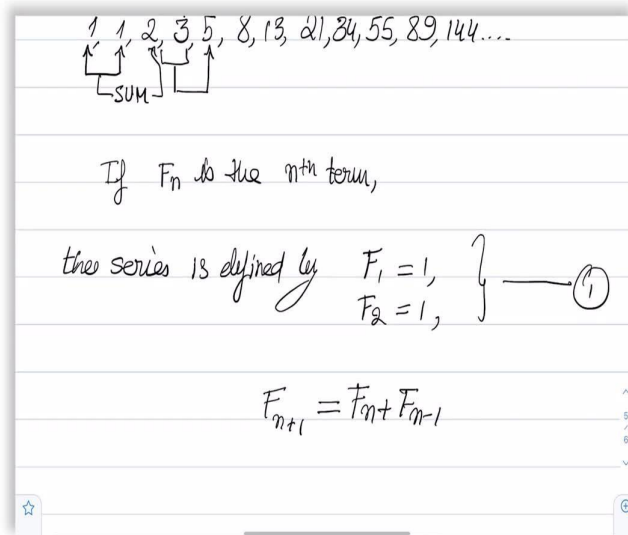 1, 1, 2, 3, 5, 8, 13, 21, 34, 55, 89, 144....
SUM
If Fn is the nth term,
the series is defined by F₁ = 1,
F₂ = 1, ①
Fₙ₊₁ = Fₙ + Fₙ₋₁
5
6